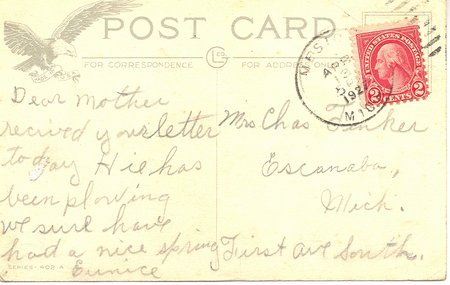 POST CARD
FOR CORRESPONDENCE
FOR ADDRESS ON
UNITED STATES POSTAGE
2 CENTS 2
MICH
192
Dear Mother
recived your letter
today Hie has
been plowing
we sure have
had a nice spring
Eunice
Mrs Chas
Escanaba,
Mich.
First Ave South.
SERIES 402 A